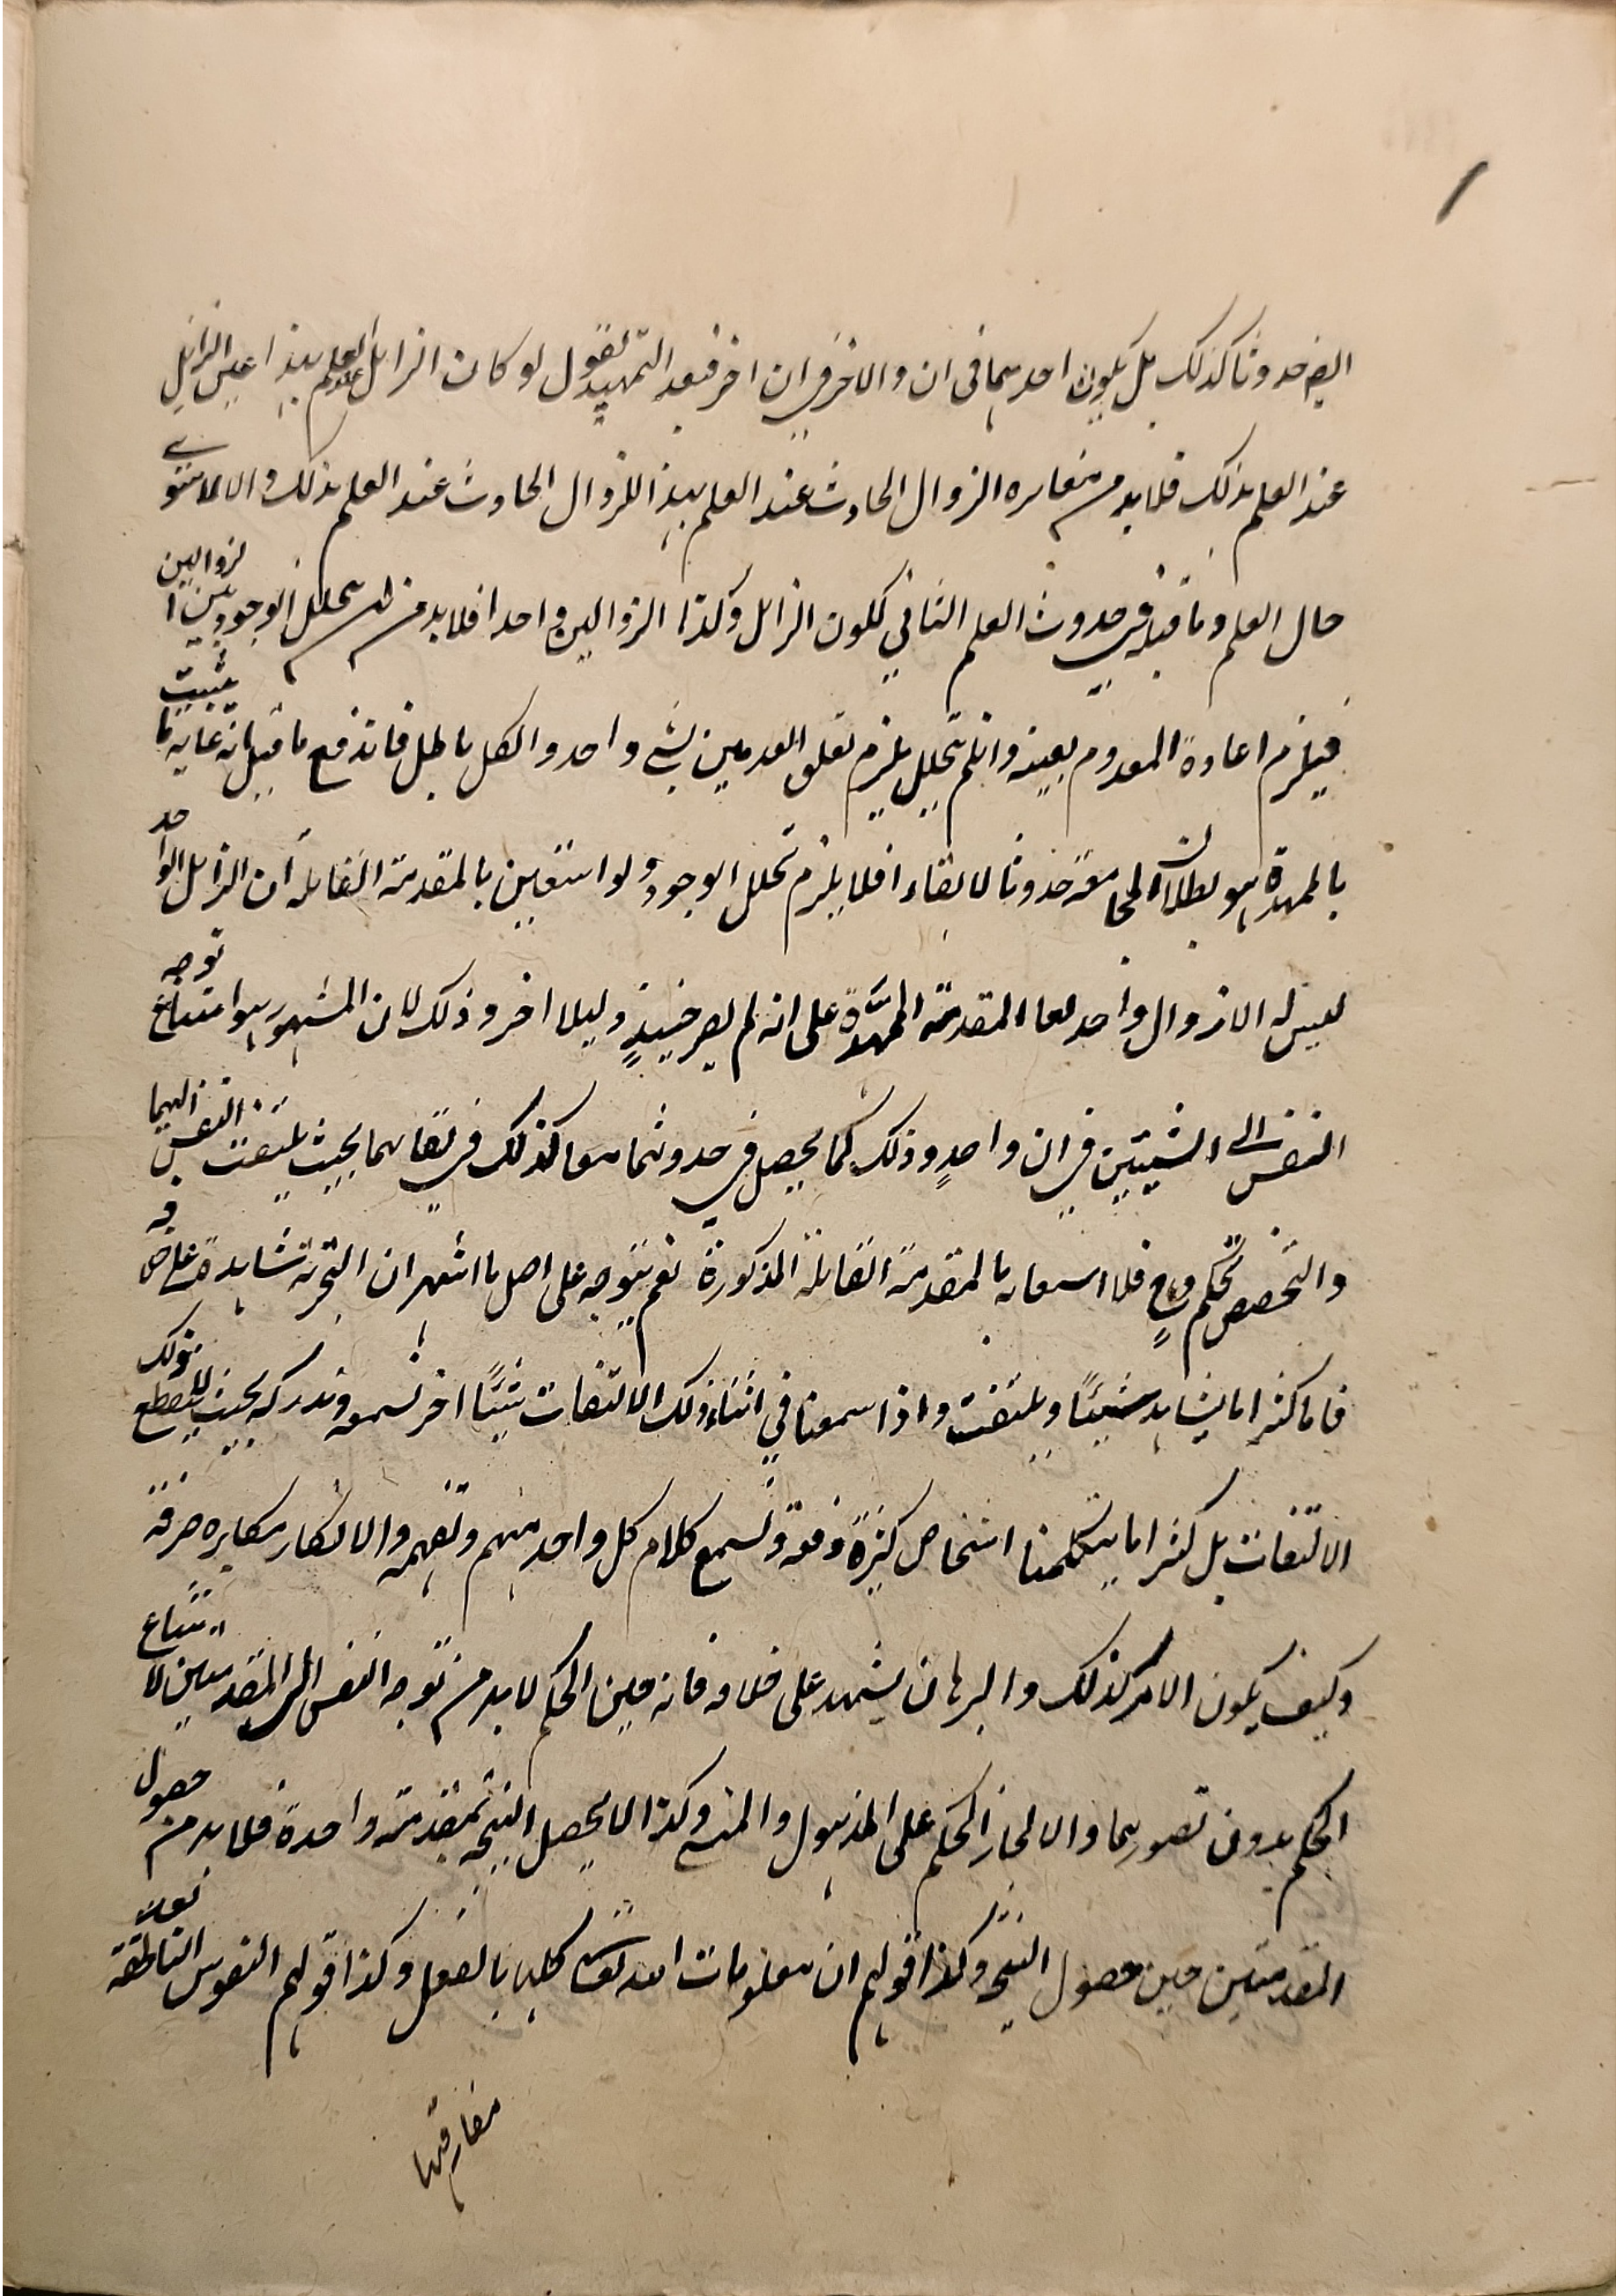 ايض حدوثا كذلك بل يكون احدهما في ان والاخر في ان اخر فبعد التمهيد نقول لو كان الزائل عند العلم بهذا عين الزائل
عند العلم بذلك فلا بد من مغايرة الزوال الحادث عند العلم بهذا للزوال الحادث عند العلم بذلك والا لاستوى
حال العلم وما قبله في حدوث العلم الثاني لكون الزائل وكذا الزوالين واحدا فلا بد من تخلل الوجود بين الزوالين
فيلزم اعادة المعدوم بعينه وان لم تحلل يلزم تعلق العدمين بشي واحد والكل باطل فاندفع ما قيل انه غاية ما يثبت
بالممهدة هو بطلان المجامعة حدوثا لا بقاء افلا يلزم تخلل الوجود ولو استعين بالمقدمة القائلة ان الزائل الواحد
ليس له الا زوال واحد لها المقدمة الممهّدة على انه لم يصر حينئذٍ دليلا اخر وذلك لان المشهور هو امتناع توجه
النفس الى الشيئين في ان واحدٍ وذلك كما يحصل في حدوثهما معا كذلك في بقائهما بحيث يلتفت النفس اليهما
والتخصيص تحكم فلا استعانة بالمقدمة القائلة المذكورة نعم يتوجه على اصل ما اشتهر ان التجربة شاهدة على خلافه
فانا كثيرا ما يشاهد شيئًا ويلتفت واذا سمعنا في اثناء ذلك الالتفات شيئًا اخر نسمعه وندركه بحيث لا ينقطع ذلك
الالتفات بل كثيرا ما يتكلمنا اشخاص كثيرة دفعة ونسمع كلام كل واحد منهم ونفهمه والانكار مكابرة صرفة
وكيف يكون الامر كذلك والبرهان يشهد على خلافه فانه حين الحكم لا بد من توجه النفس الى المقدمتين لامتناع
الحكم بدون تصورهما والا لجاز الحكم على المذهول والمنسي وكذا لا يحصل النتيجة بمقدمة واحدة فلا بد من حصول
المقدمتين حين حصول النتيجة وكذا قولهم ان معلومات الله تعالى كلها بالفعل وكذا قولهم النفوس الناطقة بعد
مفارقتها